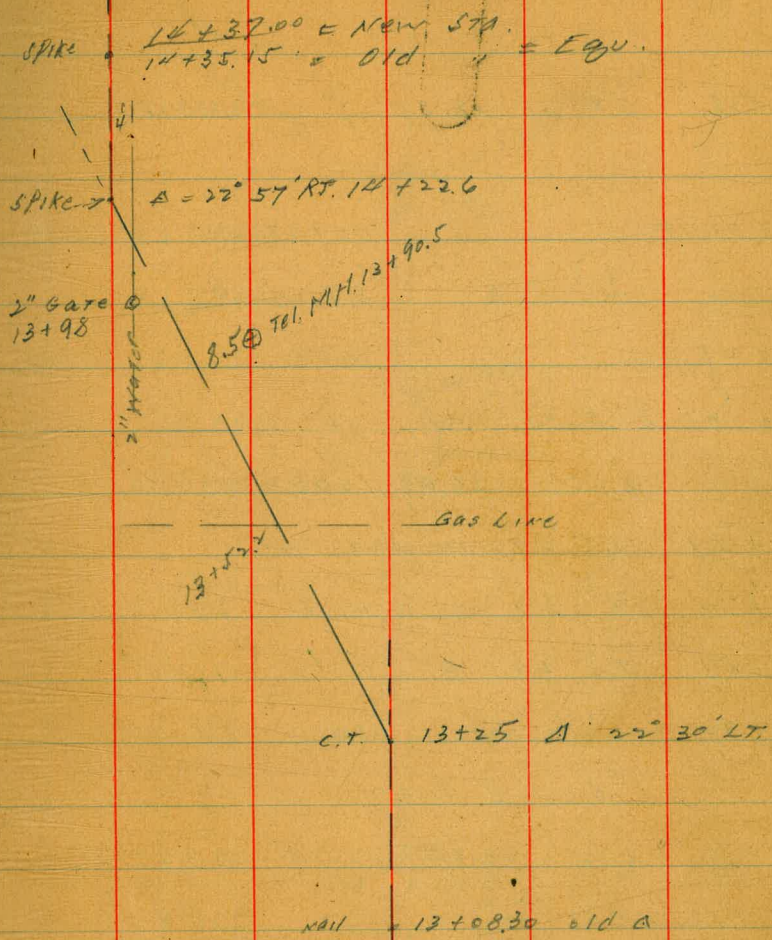 spike 14+37.00 = New Sta.
14+35.15 = Old " = Equ.
4'
spike Δ = 22° 57' RT. 14+22.6
2" Gate
13+98
8.5 Tel. M.H. 13+90.5
2" Water
Gas Line
13+52.2
C.T. 13+25 Δ 22° 30' LT.
Nail = 13+08.30 old Δ